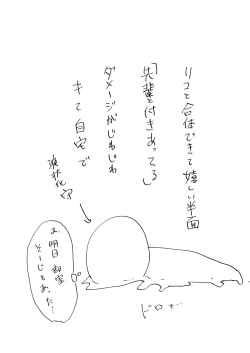 リコと合体できて嬉しい半面
「先輩と付きあってる」
ダメージがじわじわ
キて自宅で
液状化守
あ、明日
部室
そーじしなきゃ…
ドロォ…